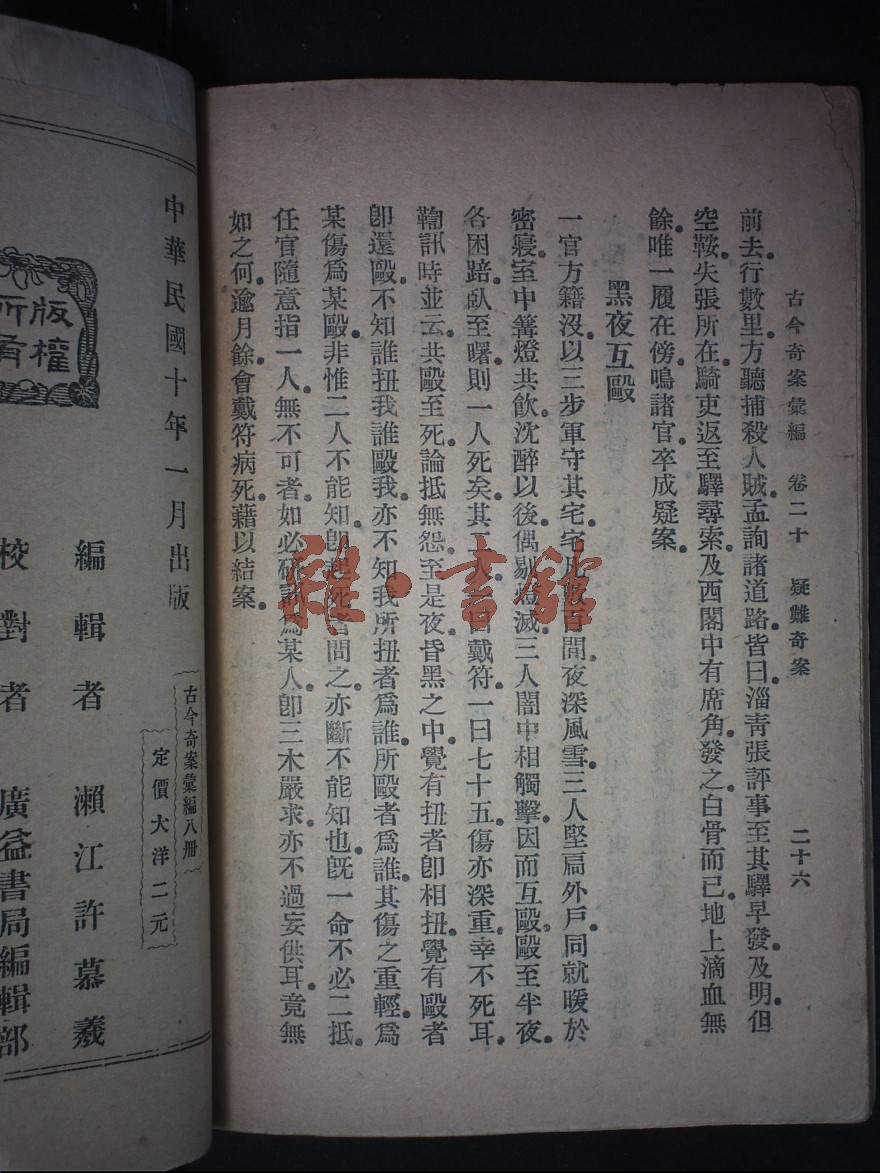 古今奇案彙編　卷二十　疑難奇案　二十六
前去。行數里。方聽捕殺人賊。孟詢諸道路。皆曰。淄靑張評事至其驛早發。及明。但
空鞍。失張所在。騎吏返至驛尋索。及西閣中有席角。發之。白骨而已。地上滴血無
餘。唯一履在傍。鳴諸官。卒成疑案。
黑夜互毆
一官方籍沒。以三步軍守其宅。宅凡數百間。夜深風雪。三人堅扃外戶。同就暖於
密寢室中。篝燈共飮。沈醉以後。偶剔燈滅。三人闇中相觸擊。因而互毆。毆至半夜。
各困踣臥。至曙。則一人死矣。其二人一曰戴符。一曰七十五。傷亦深重。幸不死耳。
鞫訊時並云。共毆至死。論抵無怨。至是夜昏黑之中。覺有扭者卽相扭。覺有毆者
卽還毆。不知誰扭我誰毆我。亦不知我所扭者爲誰。所毆者爲誰。其傷之重輕。爲
某傷爲某毆。非惟二人不能知。卽起死者問之。亦斷不能知也。旣一命不必二抵。
任官隨意指一人。無不可者。如必硏訊爲某人。卽三木嚴求。亦不過妄供耳。竟無
如之何。逾月餘。會戴符病死。藉以結案。
古今奇案彙編八冊
定價大洋二元
中華民國十年一月出版
編輯者　瀨江許慕羲
校對者　廣益書局編輯部
版權所有
雅·書館